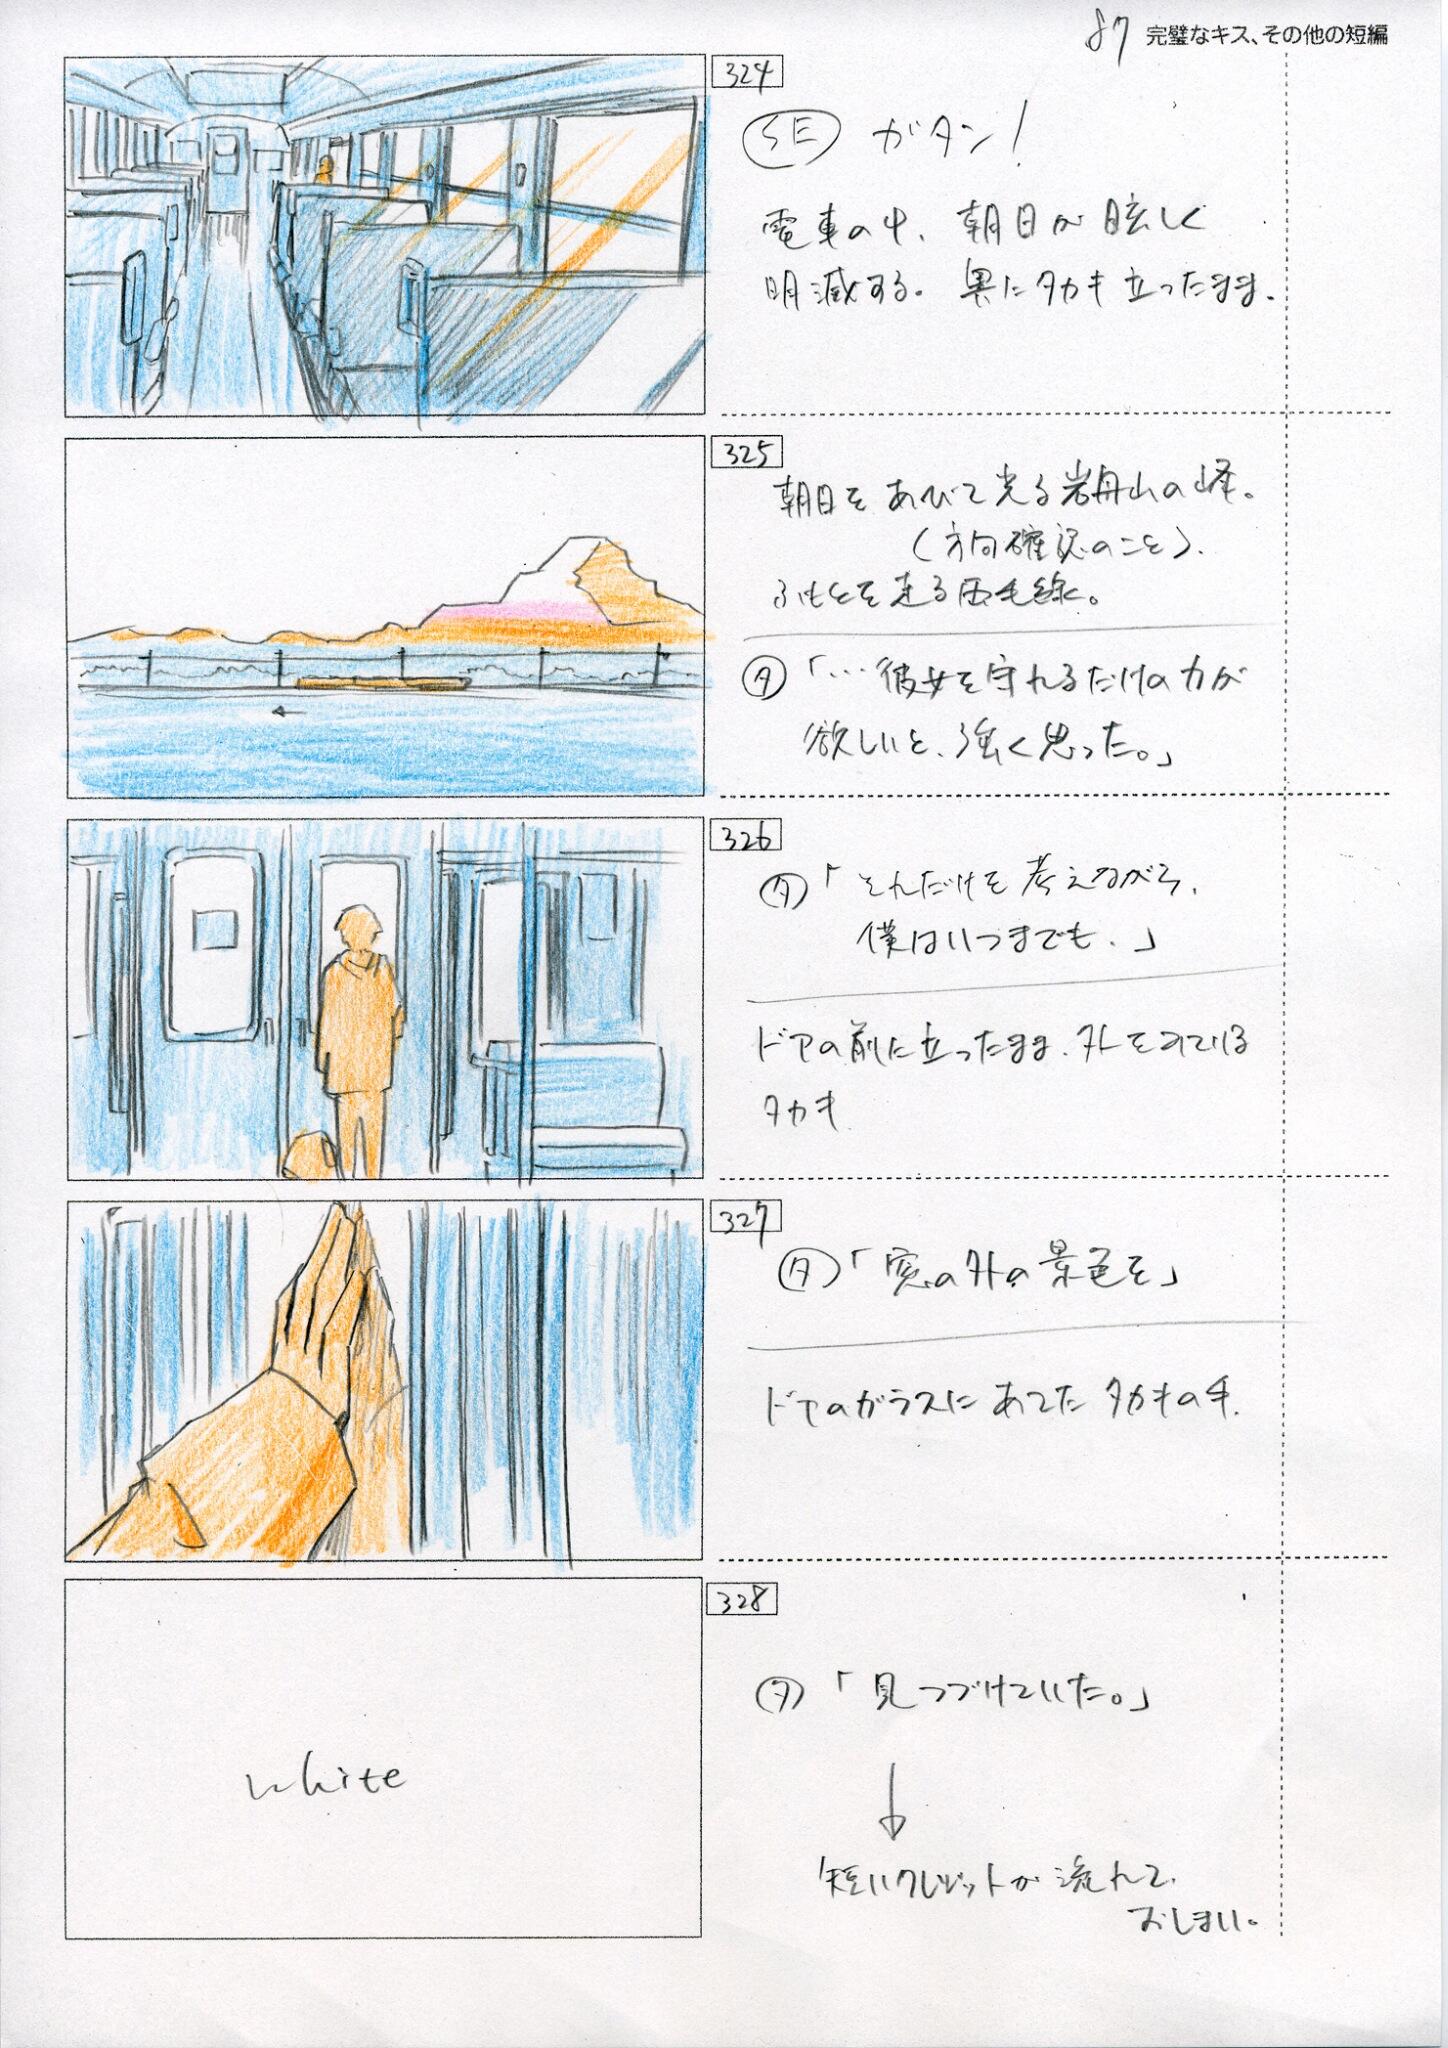 87 完璧なキス、その他の短編
324
SE ガタン!
電車の中、朝日が眩しく
明滅する。奥にタカキ立ったまま.
325
朝日をあびて光る岩舟山の峰。
(方向確認のこと).
ふもとを走る両毛線。
タ「…彼女を守れるだけの力が
欲しいと、強く思った。」
326
タ「それだけを考えながら、
僕はいつまでも、」
ドアの前に立ったまま、外をみている
タカキ
327
タ「窓の外の景色を」
ドアのガラスにあてたタカキの手.
328
タ「見つづけていた。」
white
短いクレジットが流れて、
おしまい。